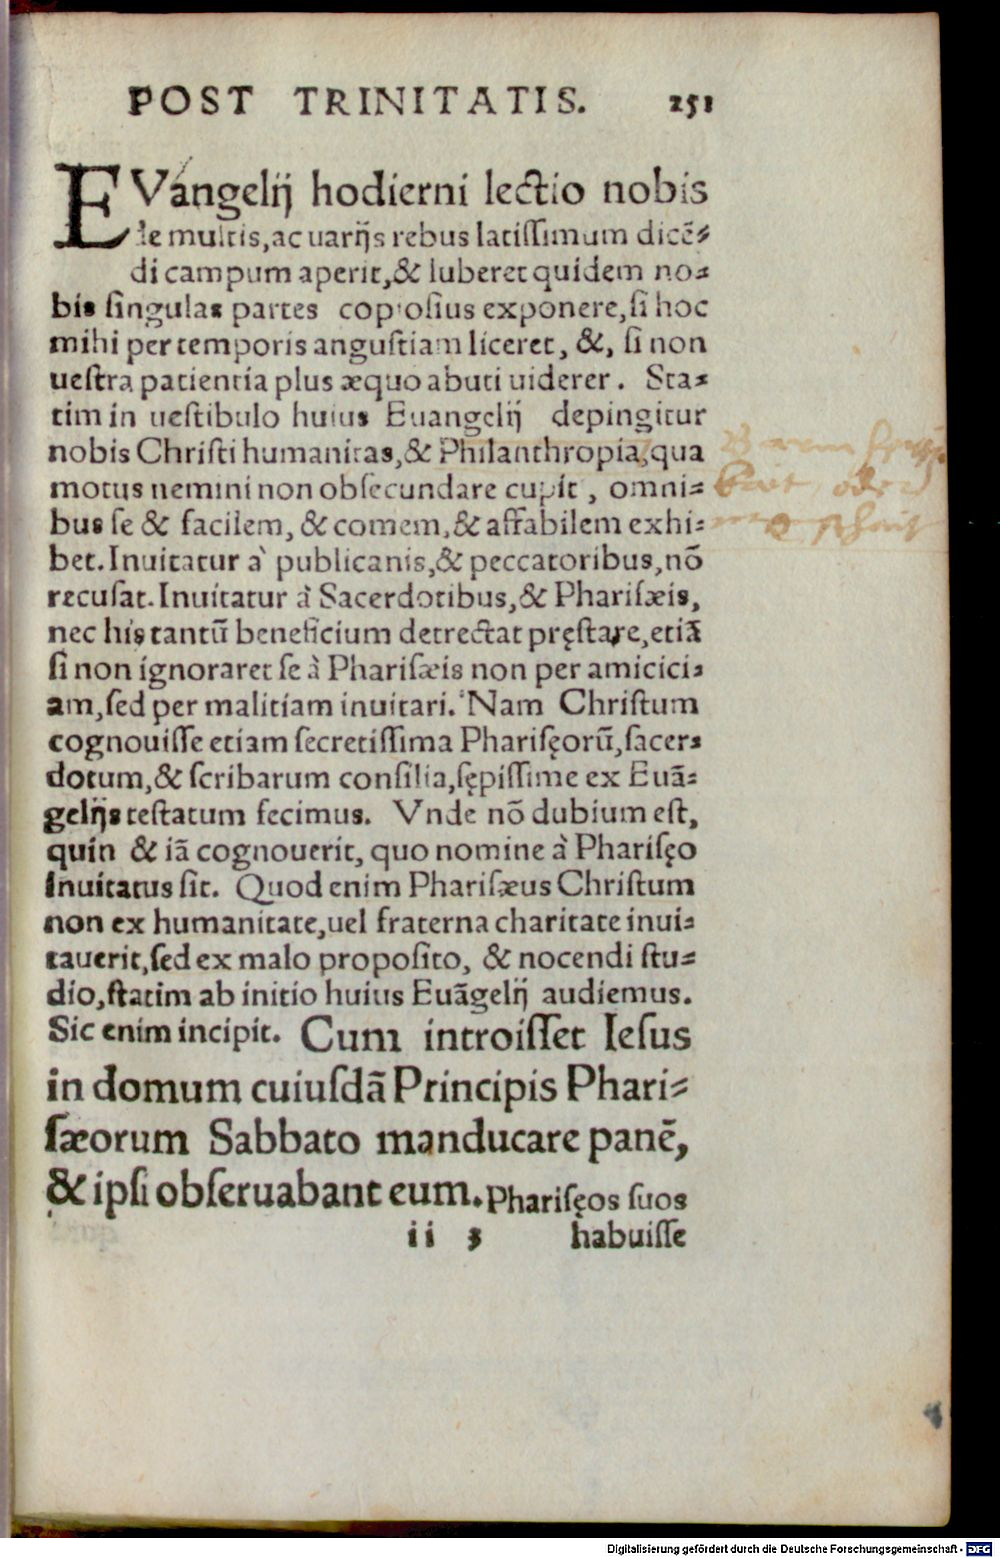 POST TRINITATIS. 251
EVangelij hodierni lectio nobis
de multis, ac uarijs rebus latissimum dicē⸗
di campum aperit, & luberet quidem no⸗
bis singulas partes copiosius exponere, si hoc
mihi per temporis angustiam liceret, &, si non
uestra patientia plus æquo abuti uiderer. Sta⸗
tim in uestibulo huius Euangelij depingitur
nobis Christi humanitas, & Philanthropia, qua
motus nemini non obsecundare cupit, omni⸗
bus se & facilem, & comem, & affabilem exhi⸗
bet. Inuitatur à publicanis, & peccatoribus, nō
recusat. Inuitatur à Sacerdotibus, & Pharisæis,
nec his tantū beneficium detrectat pręstare, etiā
si non ignoraret se à Pharisæis non per amicici⸗
am, sed per malitiam inuitari. Nam Christum
cognouisse etiam secretissima Pharisęorū, sacer⸗
dotum, & scribarum consilia, sępissime ex Euā⸗
gelijs testatum fecimus. Vnde nō dubium est,
quin & iā cognouerit, quo nomine à Pharisęo
inuitatus sit. Quod enim Pharisæus Christum
non ex humanitate, uel fraterna charitate inui⸗
tauerit, sed ex malo proposito, & nocendi stu⸗
dio, statim ab initio huius Euāgelij audiemus.
Sic enim incipit. Cum introisset Iesus
in domum cuiusdā Principis Phari⸗
sæorum Sabbato manducare panē,
& ipsi obseruabant eum. Pharisęos suos
ii 3 habuisse
Digitalisierung gefördert durch die Deutsche Forschungsgemeinschaft - DFG